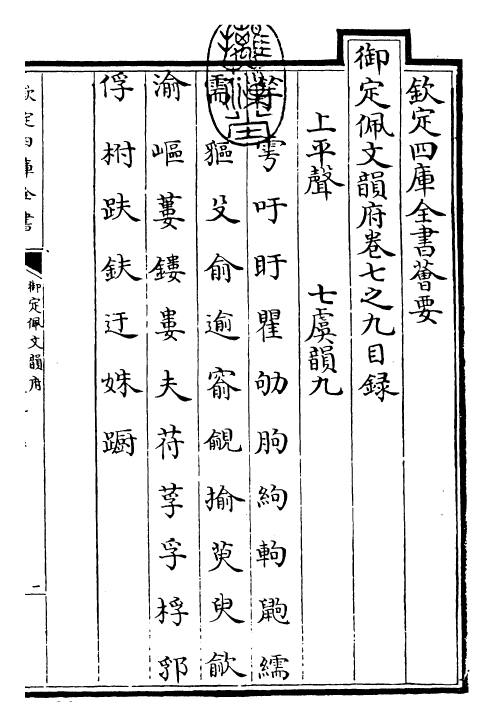 欽定四庫全書薈要
御定佩文韻府卷七之九目録
上平聲　七虞韻九
雩吁盱瞿劬朐絇軥鼩繻
貙殳俞逾窬覦揄萸臾歈
渝嶇蔞鏤婁夫苻莩孚桴郛
俘柎趺鈇迂姝蹰
御定佩文韻府
二